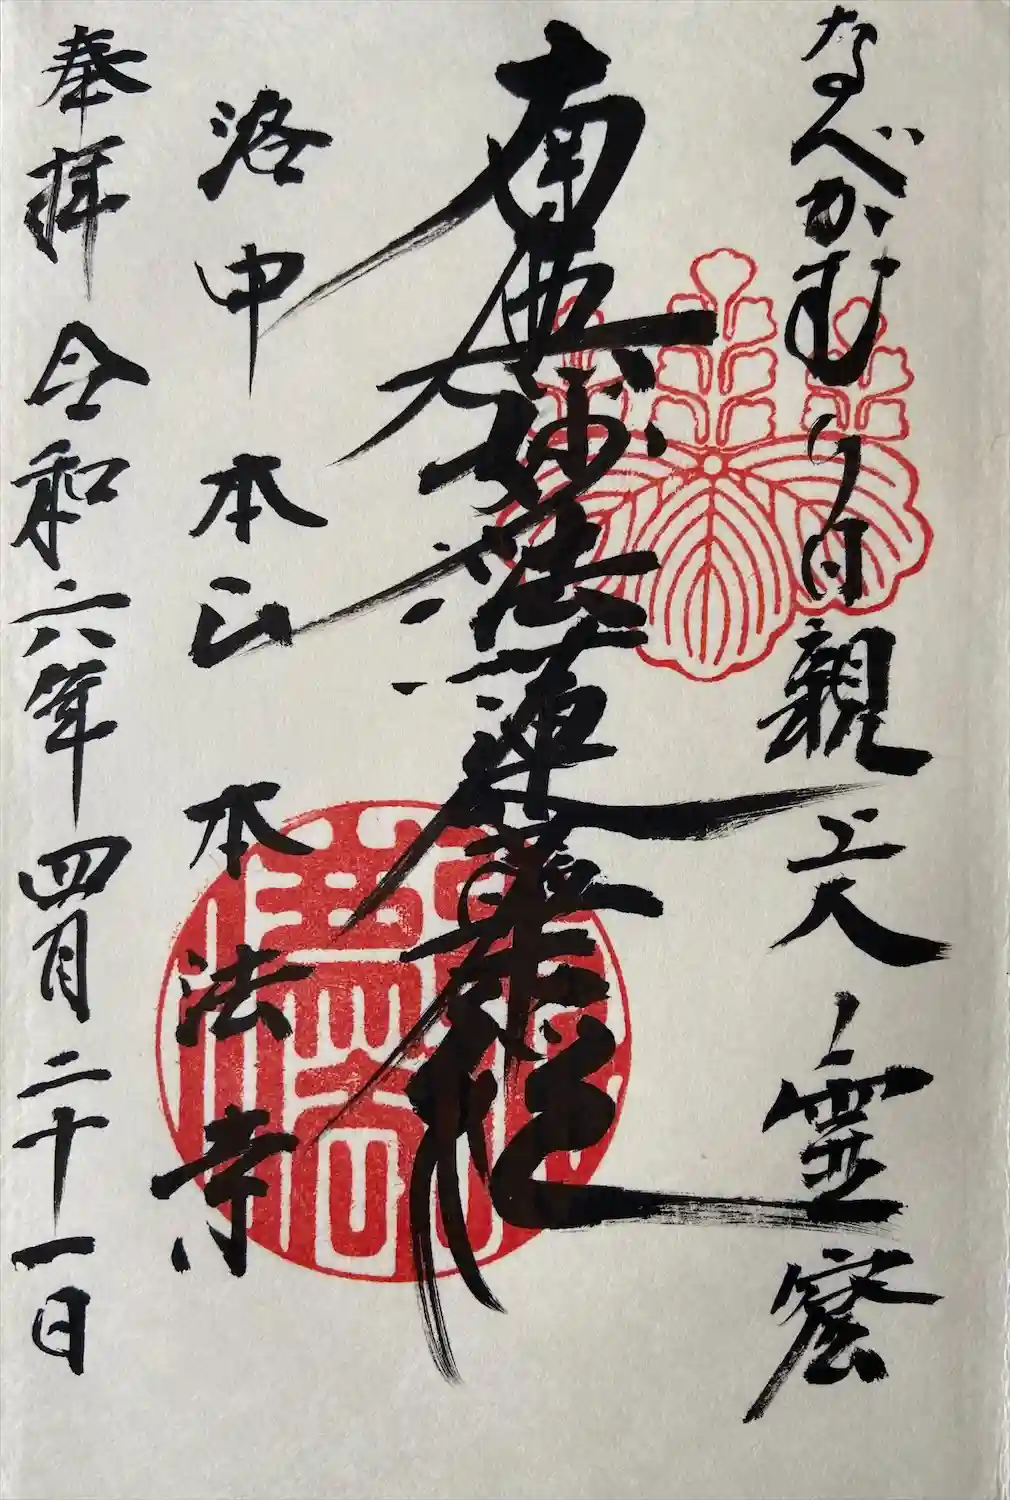 なべかむり日親上人霊窟
南無妙法蓮華経
洛中 本山 本法寺
奉拝 令和六年四月二十一日